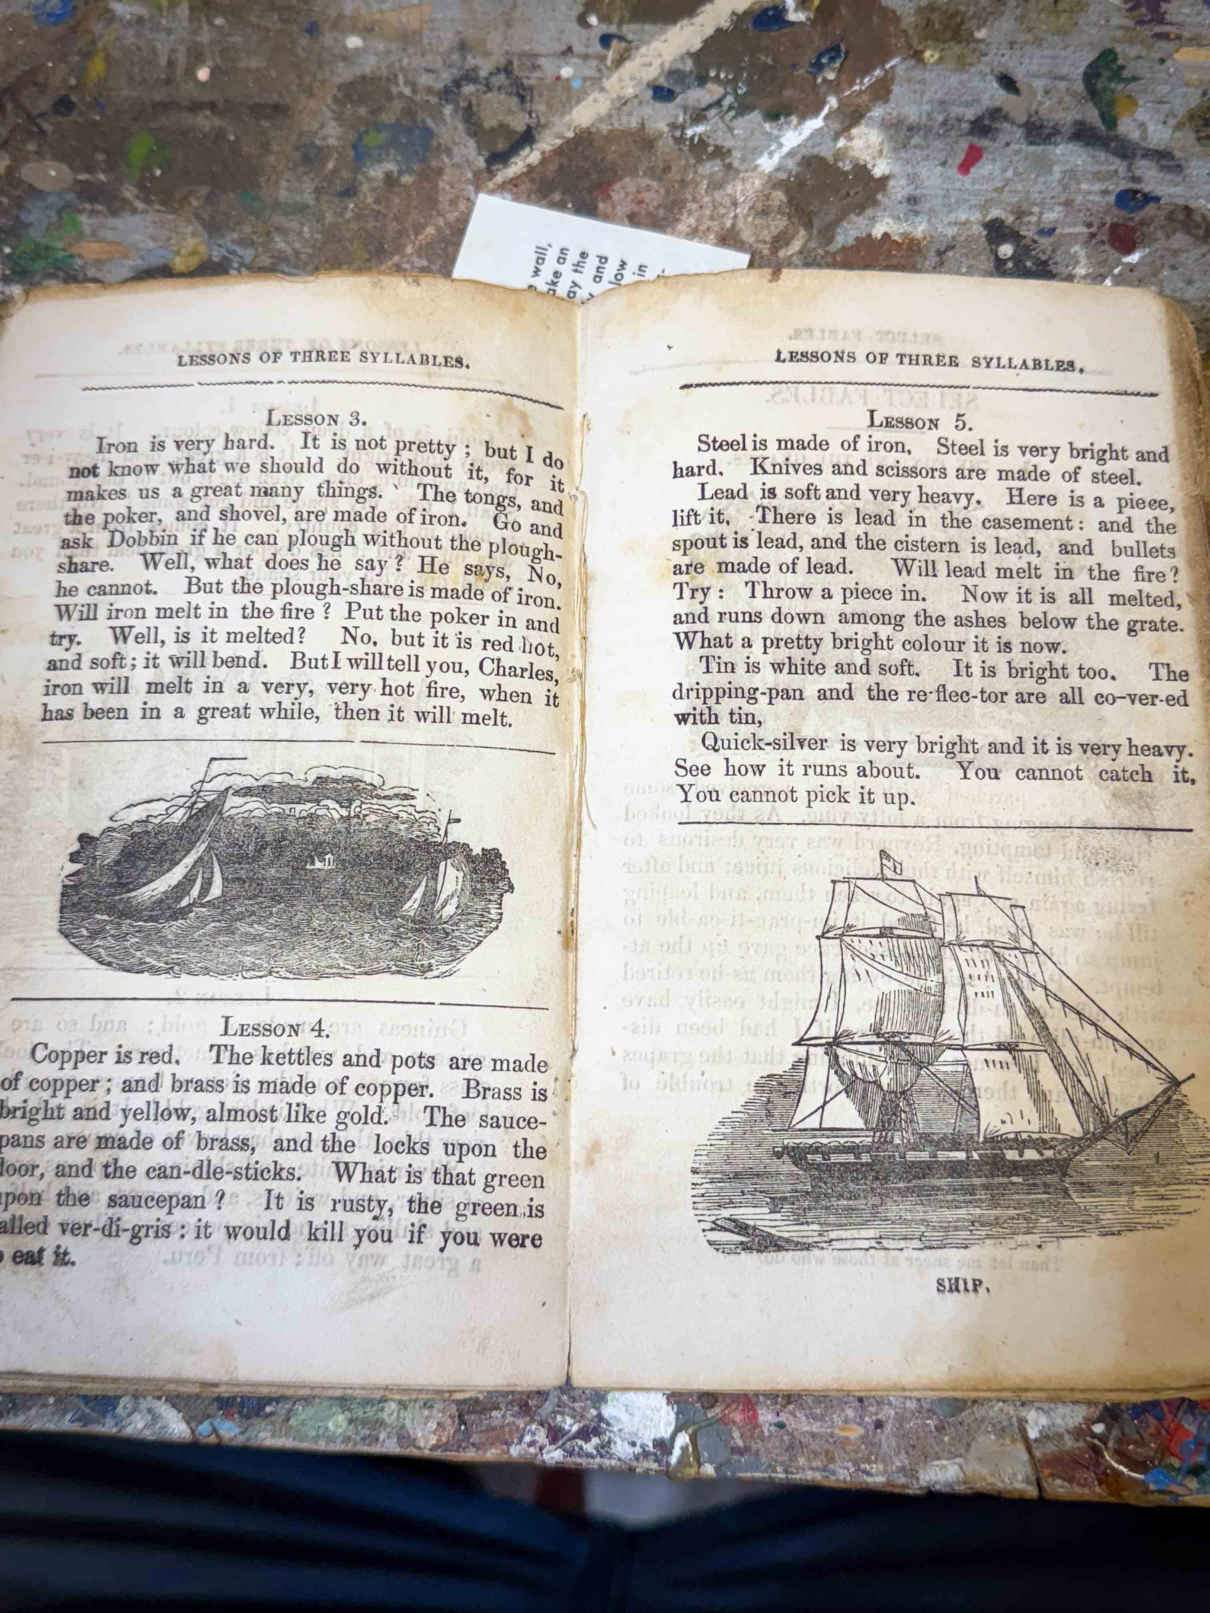 wall,
an
the
and
low
in
LESSONS OF THREE SYLLABLES.
LESSON 3.
Iron is very hard. It is not pretty ; but I do
not know what we should do without it, for it
makes us a great many things. The tongs, and
the poker, and shovel, are made of iron. Go and
ask Dobbin if he can plough without the plough-
share. Well, what does he say ? He says, No,
he cannot. But the plough-share is made of iron.
Will iron melt in the fire ? Put the poker in and
try. Well, is it melted? No, but it is red hot,
and soft ; it will bend. But I will tell you, Charles,
iron will melt in a very, very hot fire, when it
has been in a great while, then it will melt.
LESSON 4.
Copper is red. The kettles and pots are made
of copper ; and brass is made of copper. Brass is
bright and yellow, almost like gold. The sauce-
pans are made of brass, and the locks upon the
door, and the can-dle-sticks. What is that green
upon the saucepan ? It is rusty, the green is
called ver-di-gris : it would kill you if you were
eat it.
LESSONS OF THREE SYLLABLES.
LESSON 5.
Steel is made of iron. Steel is very bright and
hard. Knives and scissors are made of steel.
Lead is soft and very heavy. Here is a piece,
lift it. There is lead in the casement : and the
spout is lead, and the cistern is lead, and bullets
are made of lead. Will lead melt in the fire?
Try : Throw a piece in. Now it is all melted,
and runs down among the ashes below the grate.
What a pretty bright colour it is now.
Tin is white and soft. It is bright too. The
dripping-pan and the re-flec-tor are all co-ver-ed
with tin,
Quick-silver is very bright and it is very heavy.
See how it runs about. You cannot catch it,
You cannot pick it up.
SHIP.